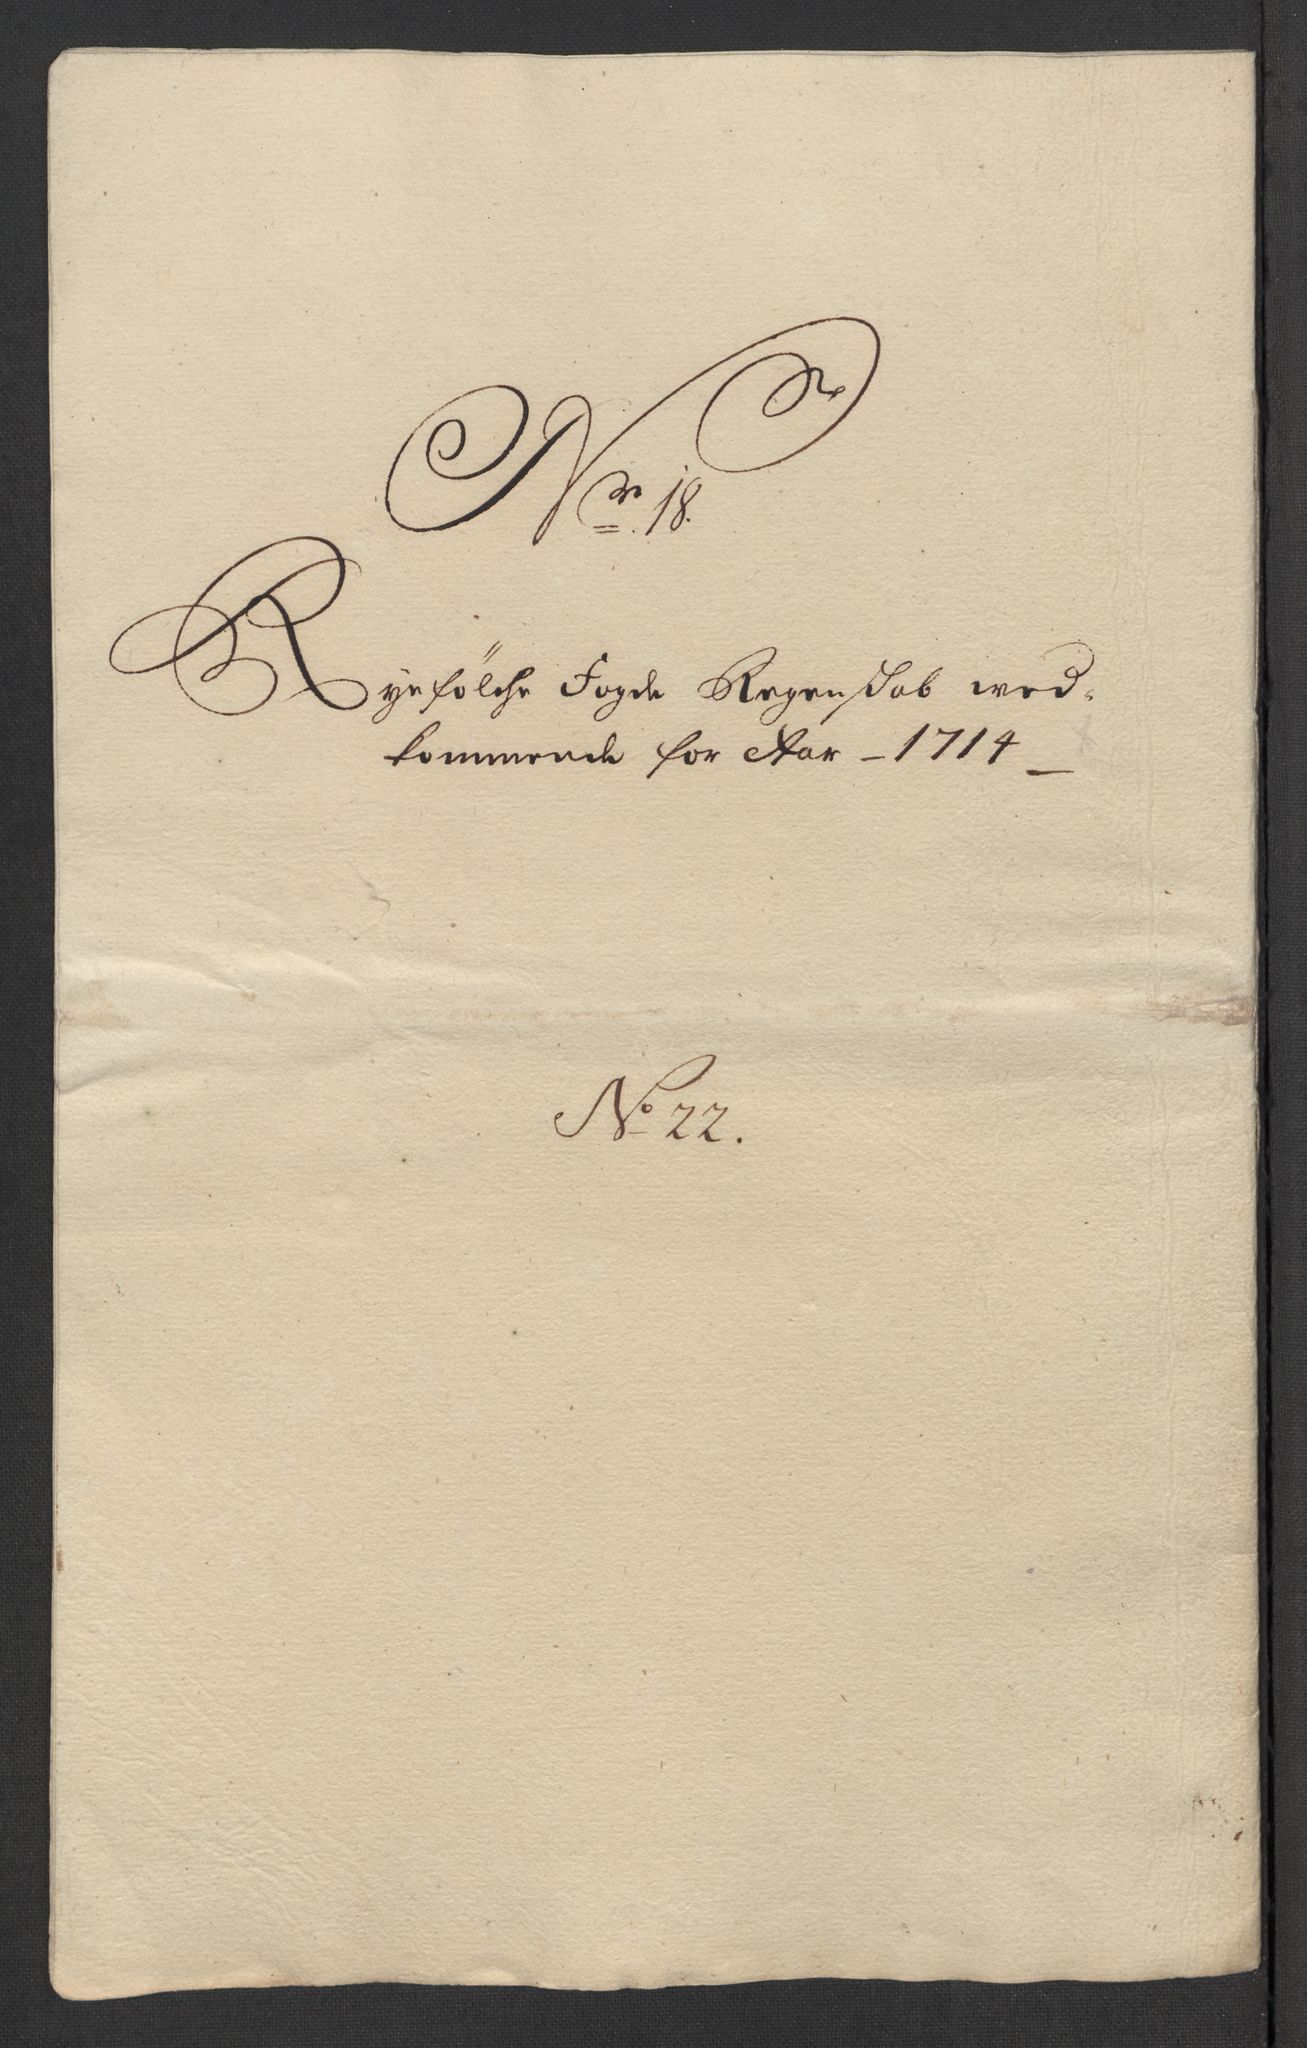 Nr. 18.
Ryefölche Fogde Regenskab wed-
kommende for Aar - 1714 -
No 22.